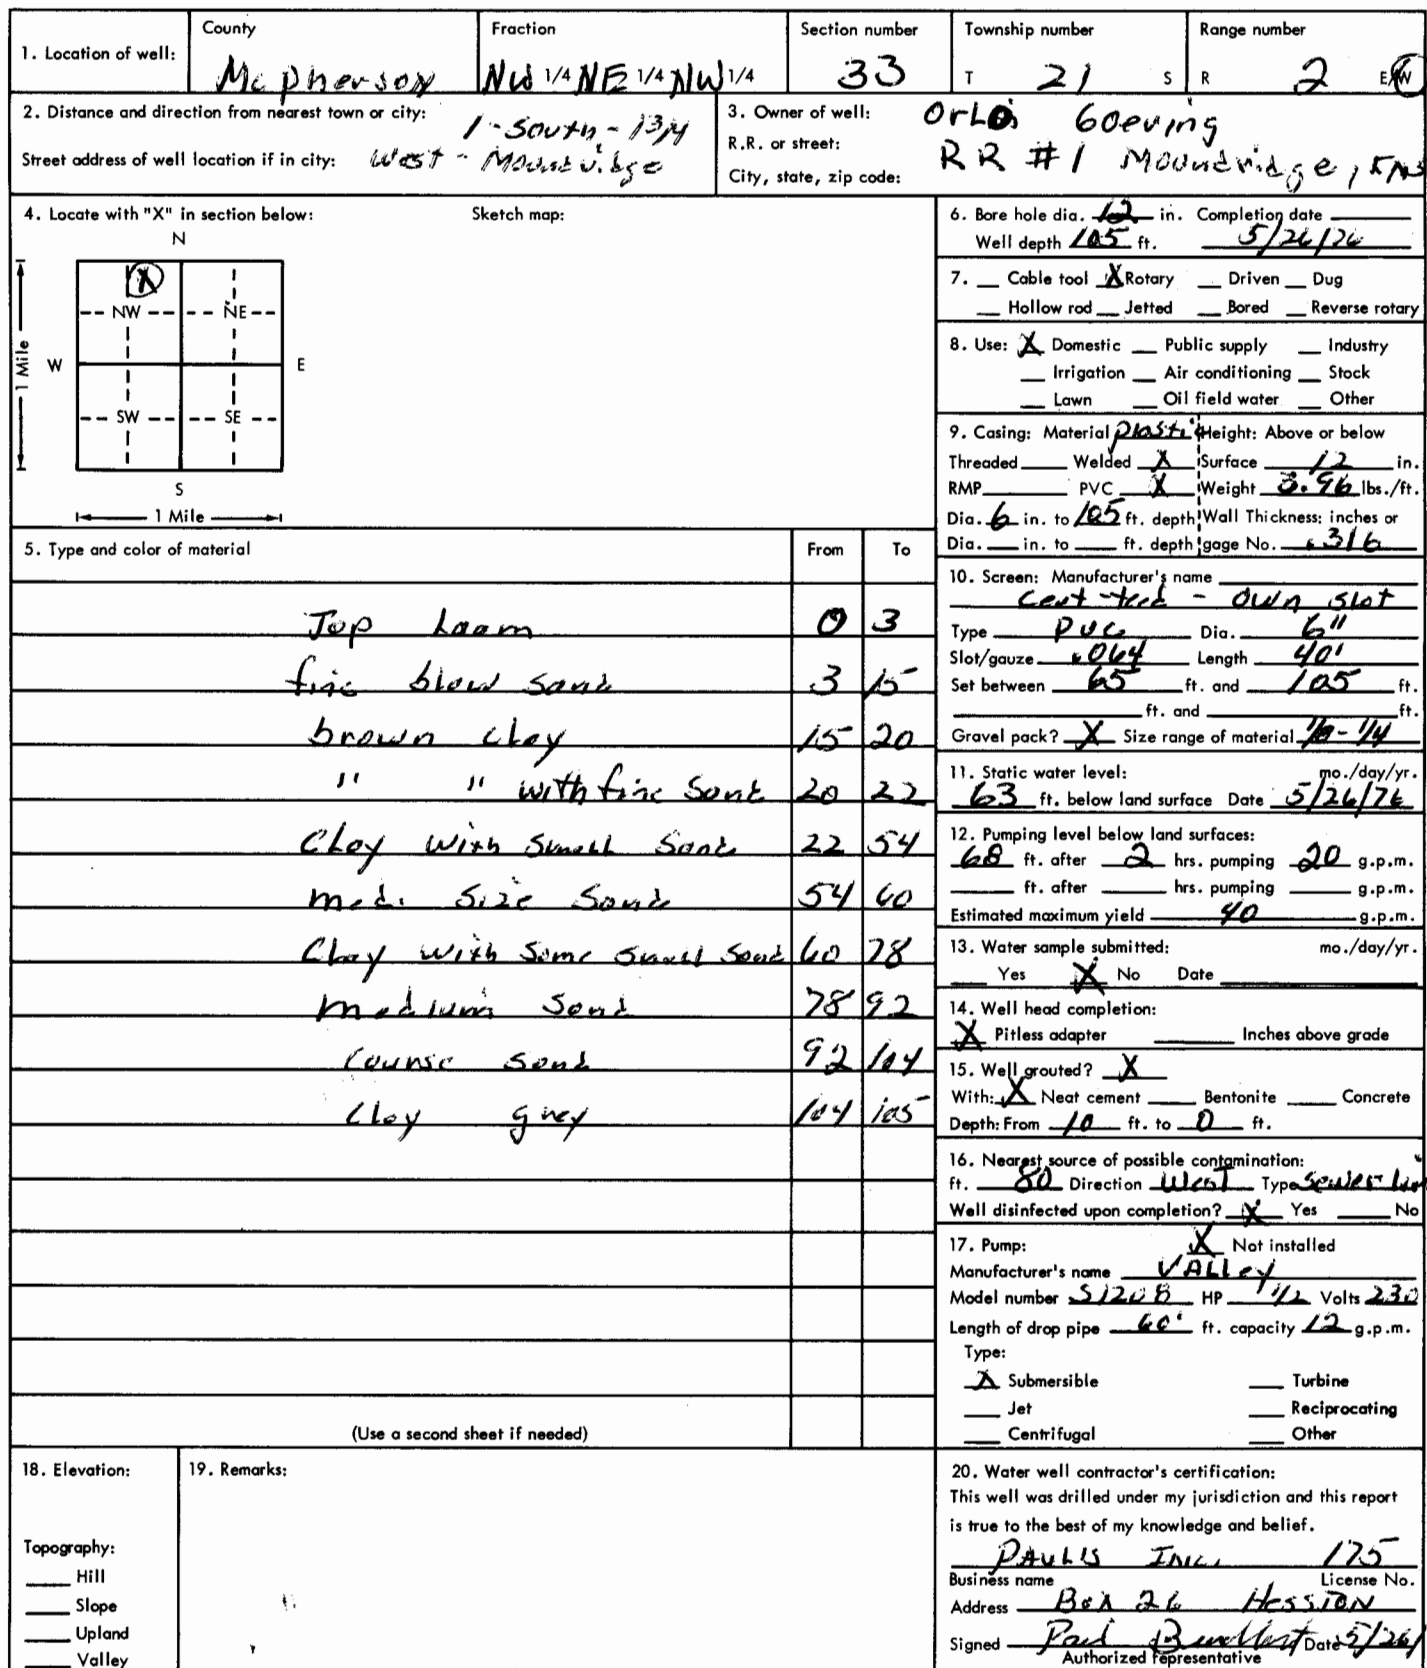 1. Location of well:
County
McPherson
Fraction
NW 1/4 NE 1/4 NW 1/4
Section number
33
Township number
T 21 S
Range number
R 2 E/W
2. Distance and direction from nearest town or city: 1-South-
Street address of well location if in city: West - Moundridge
3. Owner of well: Orlo Goering
R.R. or street: RR #1 Moundridge,
City, state, zip code:
4. Locate with "X" in section below:
Sketch map:
N
X
NW NE
W E
SW SE
S
1 Mile
1 Mile
5. Type and color of material From To
Top Loam 0 3
fine blow sand 3 15
brown clay 15 20
" " with fine sand 20 22
Clay with small sand 22 54
med. size sand 54 60
Clay with some small sand 60 78
medium sand 78 92
course sand 92 104
clay grey 104 105
(Use a second sheet if needed)
6. Bore hole dia. 12 in. Completion date
Well depth 105 ft. 5/26/76
7. Cable tool X Rotary Driven Dug
Hollow rod Jetted Bored Reverse rotary
8. Use: X Domestic Public supply Industry
Irrigation Air conditioning Stock
Lawn Oil field water Other
9. Casing: Material plastic Height: Above or below
Threaded Welded X Surface 12 in.
RMP PVC X Weight 3.96 lbs./ft.
Dia. 6 in. to 105 ft. depth Wall Thickness: inches or
Dia. in. to ft. depth gage No. .316
10. Screen: Manufacturer's name
Cert-teed - own slot
Type PVC Dia. 6"
Slot/gauze .064 Length 40'
Set between 65 ft. and 105 ft.
ft. and ft.
Gravel pack? X Size range of material 1/8-1/4
11. Static water level: mo./day/yr.
63 ft. below land surface Date 5/26/76
12. Pumping level below land surfaces:
68 ft. after 2 hrs. pumping 20 g.p.m.
ft. after hrs. pumping g.p.m.
Estimated maximum yield 40 g.p.m.
13. Water sample submitted: mo./day/yr.
Yes X No Date
14. Well head completion:
X Pitless adapter Inches above grade
15. Well grouted? X
With: X Neat cement Bentonite Concrete
Depth: From 10 ft. to 0 ft.
16. Nearest source of possible contamination:
ft. 80 Direction West Type Sewer
Well disinfected upon completion? X Yes No
17. Pump: X Not installed
Manufacturer's name VALLEY
Model number S120B HP 1/2 Volts 230
Length of drop pipe 60' ft. capacity 12 g.p.m.
Type:
X Submersible Turbine
Jet Reciprocating
Centrifugal Other
18. Elevation:
Topography:
Hill
Slope
Upland
Valley
19. Remarks:
20. Water well contractor's certification:
This well was drilled under my jurisdiction and this report
is true to the best of my knowledge and belief.
PAULS INC. 175
Business name License No.
Address Box 26 HESSTON
Signed Paul Date 5/26/
Authorized representative